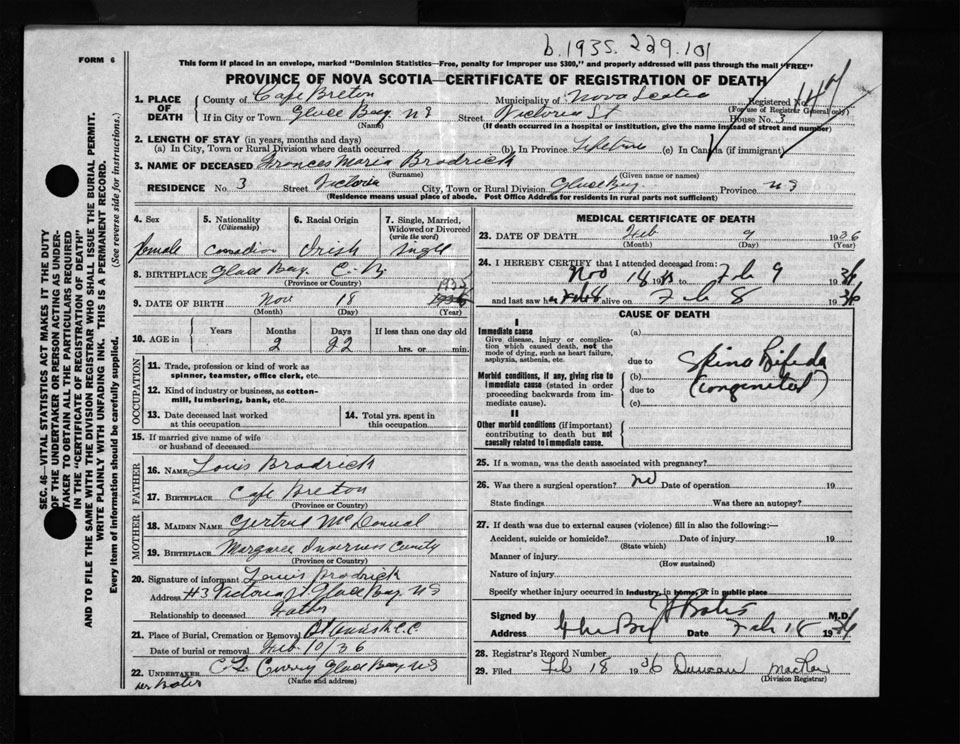 b. 1935. 229.101
FORM 6
This form if placed in an envelope, marked "Dominion Statistics—Free, penalty for improper use $300," and properly addressed will pass through the mail "FREE"
PROVINCE OF NOVA SCOTIA—CERTIFICATE OF REGISTRATION OF DEATH
1. PLACE OF DEATH
County of Cape Breton Municipality of Nova Scotia Registered No.
(For use of Registrar General only)
If in City or Town Glace Bay. NS Street Victoria St House No. 3
(Name) (If death occurred in a hospital or institution, give the name instead of street and number)
2. LENGTH OF STAY (in years, months and days)
(a) In City, Town or Rural Division where death occurred (b) In Province Lifetime (c) In Canada (if immigrant)
3. NAME OF DECEASED Frances Maria Brodrick
(Surname) (Given name or names)
RESIDENCE No. 3 Street Victoria City, Town or Rural Division Glace Bay. Province NS
(Residence means usual place of abode. Post Office Address for residents in rural parts not sufficient)
4. Sex
Female
5. Nationality (Citizenship)
Canadian
6. Racial Origin
Irish
7. Single, Married, Widowed or Divorced (write the word)
Single
8. BIRTHPLACE Glace Bay. C. B.
(Province or Country)
9. DATE OF BIRTH Nov 18 1935
(Month) (Day) (Year)
10. AGE in Years Months Days If less than one day old
2 22 hrs. or min.
OCCUPATION
11. Trade, profession or kind of work as spinner, teamster, office clerk, etc.
12. Kind of industry or business, as cotten-mill, lumbering, bank, etc.
13. Date deceased last worked at this occupation
14. Total yrs. spent in this occupation
15. If married give name of wife or husband of deceased
FATHER
16. NAME Louis Brodrick
17. BIRTHPLACE Cape Breton
(Province or Country)
MOTHER
18. MAIDEN NAME Gertrud McDonnal
19. BIRTHPLACE Margaree Inverness County
(Province or Country)
20. Signature of informant Louis Brodrick
Address #3 Victoria St. Glace Bay NS
Relationship to deceased Father
21. Place of Burial, Cremation or Removal
Date of burial or removal Feb. 10/36
22. UNDERTAKER C. L. Curry Glace Bay. NS
(Name and address)
MEDICAL CERTIFICATE OF DEATH
23. DATE OF DEATH Feb 9 1936
(Month) (Day) (Year)
24. I HEREBY CERTIFY that I attended deceased from:
Nov 18 19 35 to Feb 9 19 36
and last saw her alive on Feb 8 19 36
CAUSE OF DEATH
I
Immediate cause
Give disease, injury or complication which caused death, not the mode of dying, such as heart failure, asphyxia, asthenia, etc.
(a)
due to Spina Bifida
Morbid conditions, if any, giving rise to immediate cause (stated in order proceeding backwards from immediate cause).
(b)
due to (congenital)
(c)
II
Other morbid conditions (if important) contributing to death but not causally related to immediate cause.
25. If a woman, was the death associated with pregnancy?
26. Was there a surgical operation? no Date of operation 19
State findings Was there an autopsy?
27. If death was due to external causes (violence) fill in also the following:—
Accident, suicide or homicide? Date of injury 19
(State which)
Manner of injury
(How sustained)
Nature of injury
Specify whether injury occurred in industry, in home, or in public place
Signed by M.D.
Address Date Feb 18 19 36
28. Registrar's Record Number
29. Filed Feb 18 1936 Duncan
(Division Registrar)
SEC. 46—VITAL STATISTICS ACT MAKES IT THE DUTY
OF THE UNDERTAKER OR PERSON ACTING AS UNDER-
TAKER TO OBTAIN ALL THE PARTICULARS REQUIRED
IN THE "CERTIFICATE OF REGISTRATION OF DEATH"
AND TO FILE THE SAME WITH THE DIVISION REGISTRAR WHO SHALL ISSUE THE BURIAL PERMIT.
WRITE PLAINLY WITH UNFADING INK. THIS IS A PERMANENT RECORD.
Every item of information should be carefully supplied. (See reverse side for instructions.)